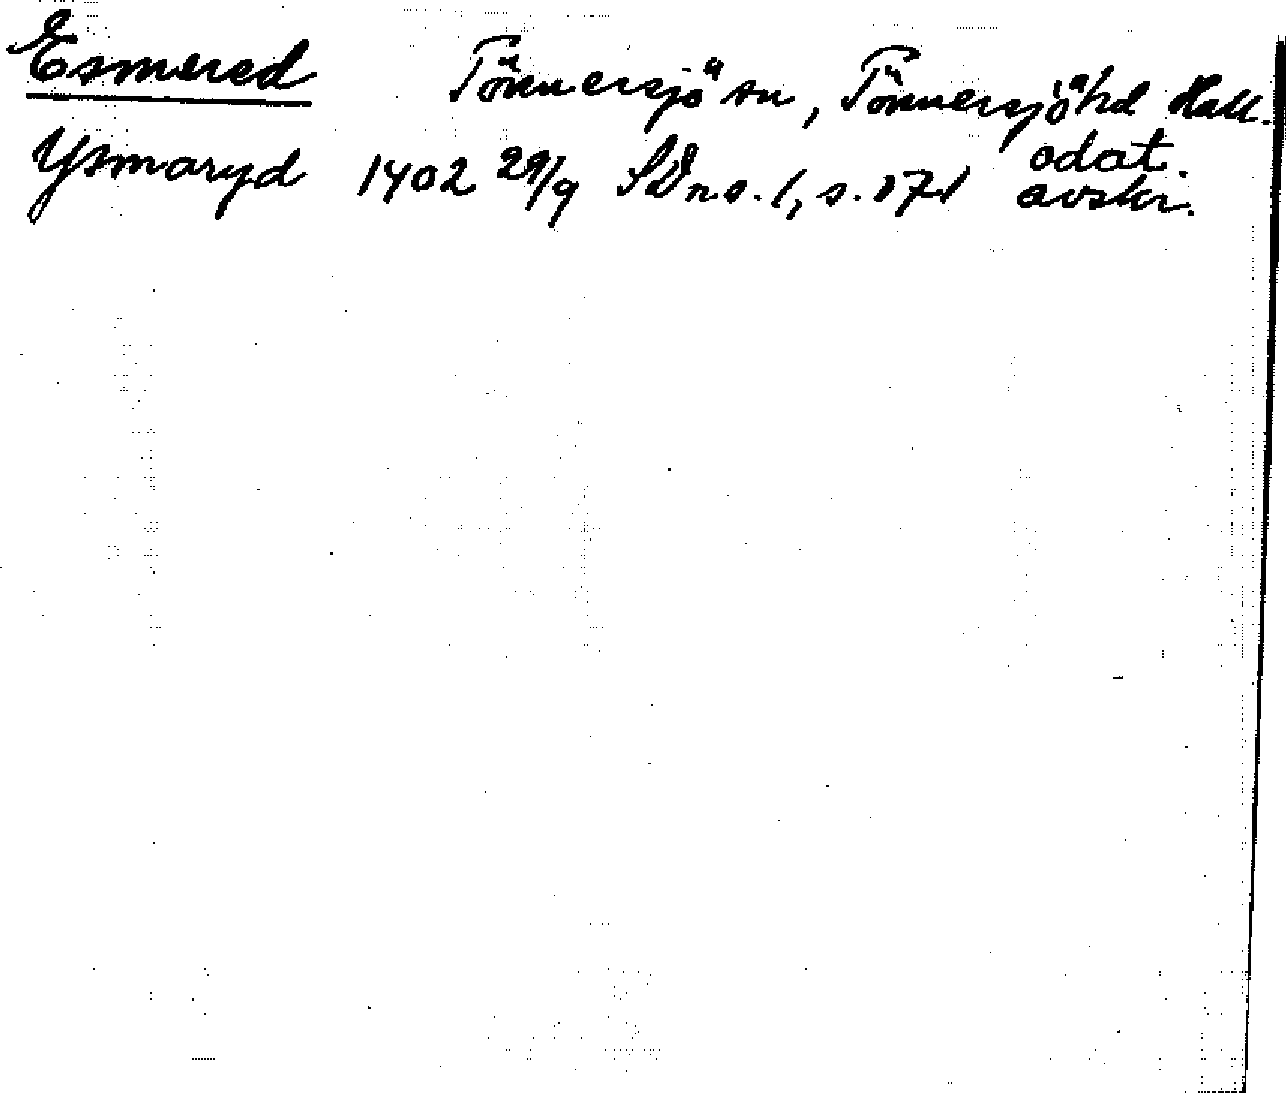 Esmered Tönnersjö sn, Tönnersjö hd Hall.
Ysmaryd 1402 29/9 SD n.s. 1, s. 171 odat. avskr.